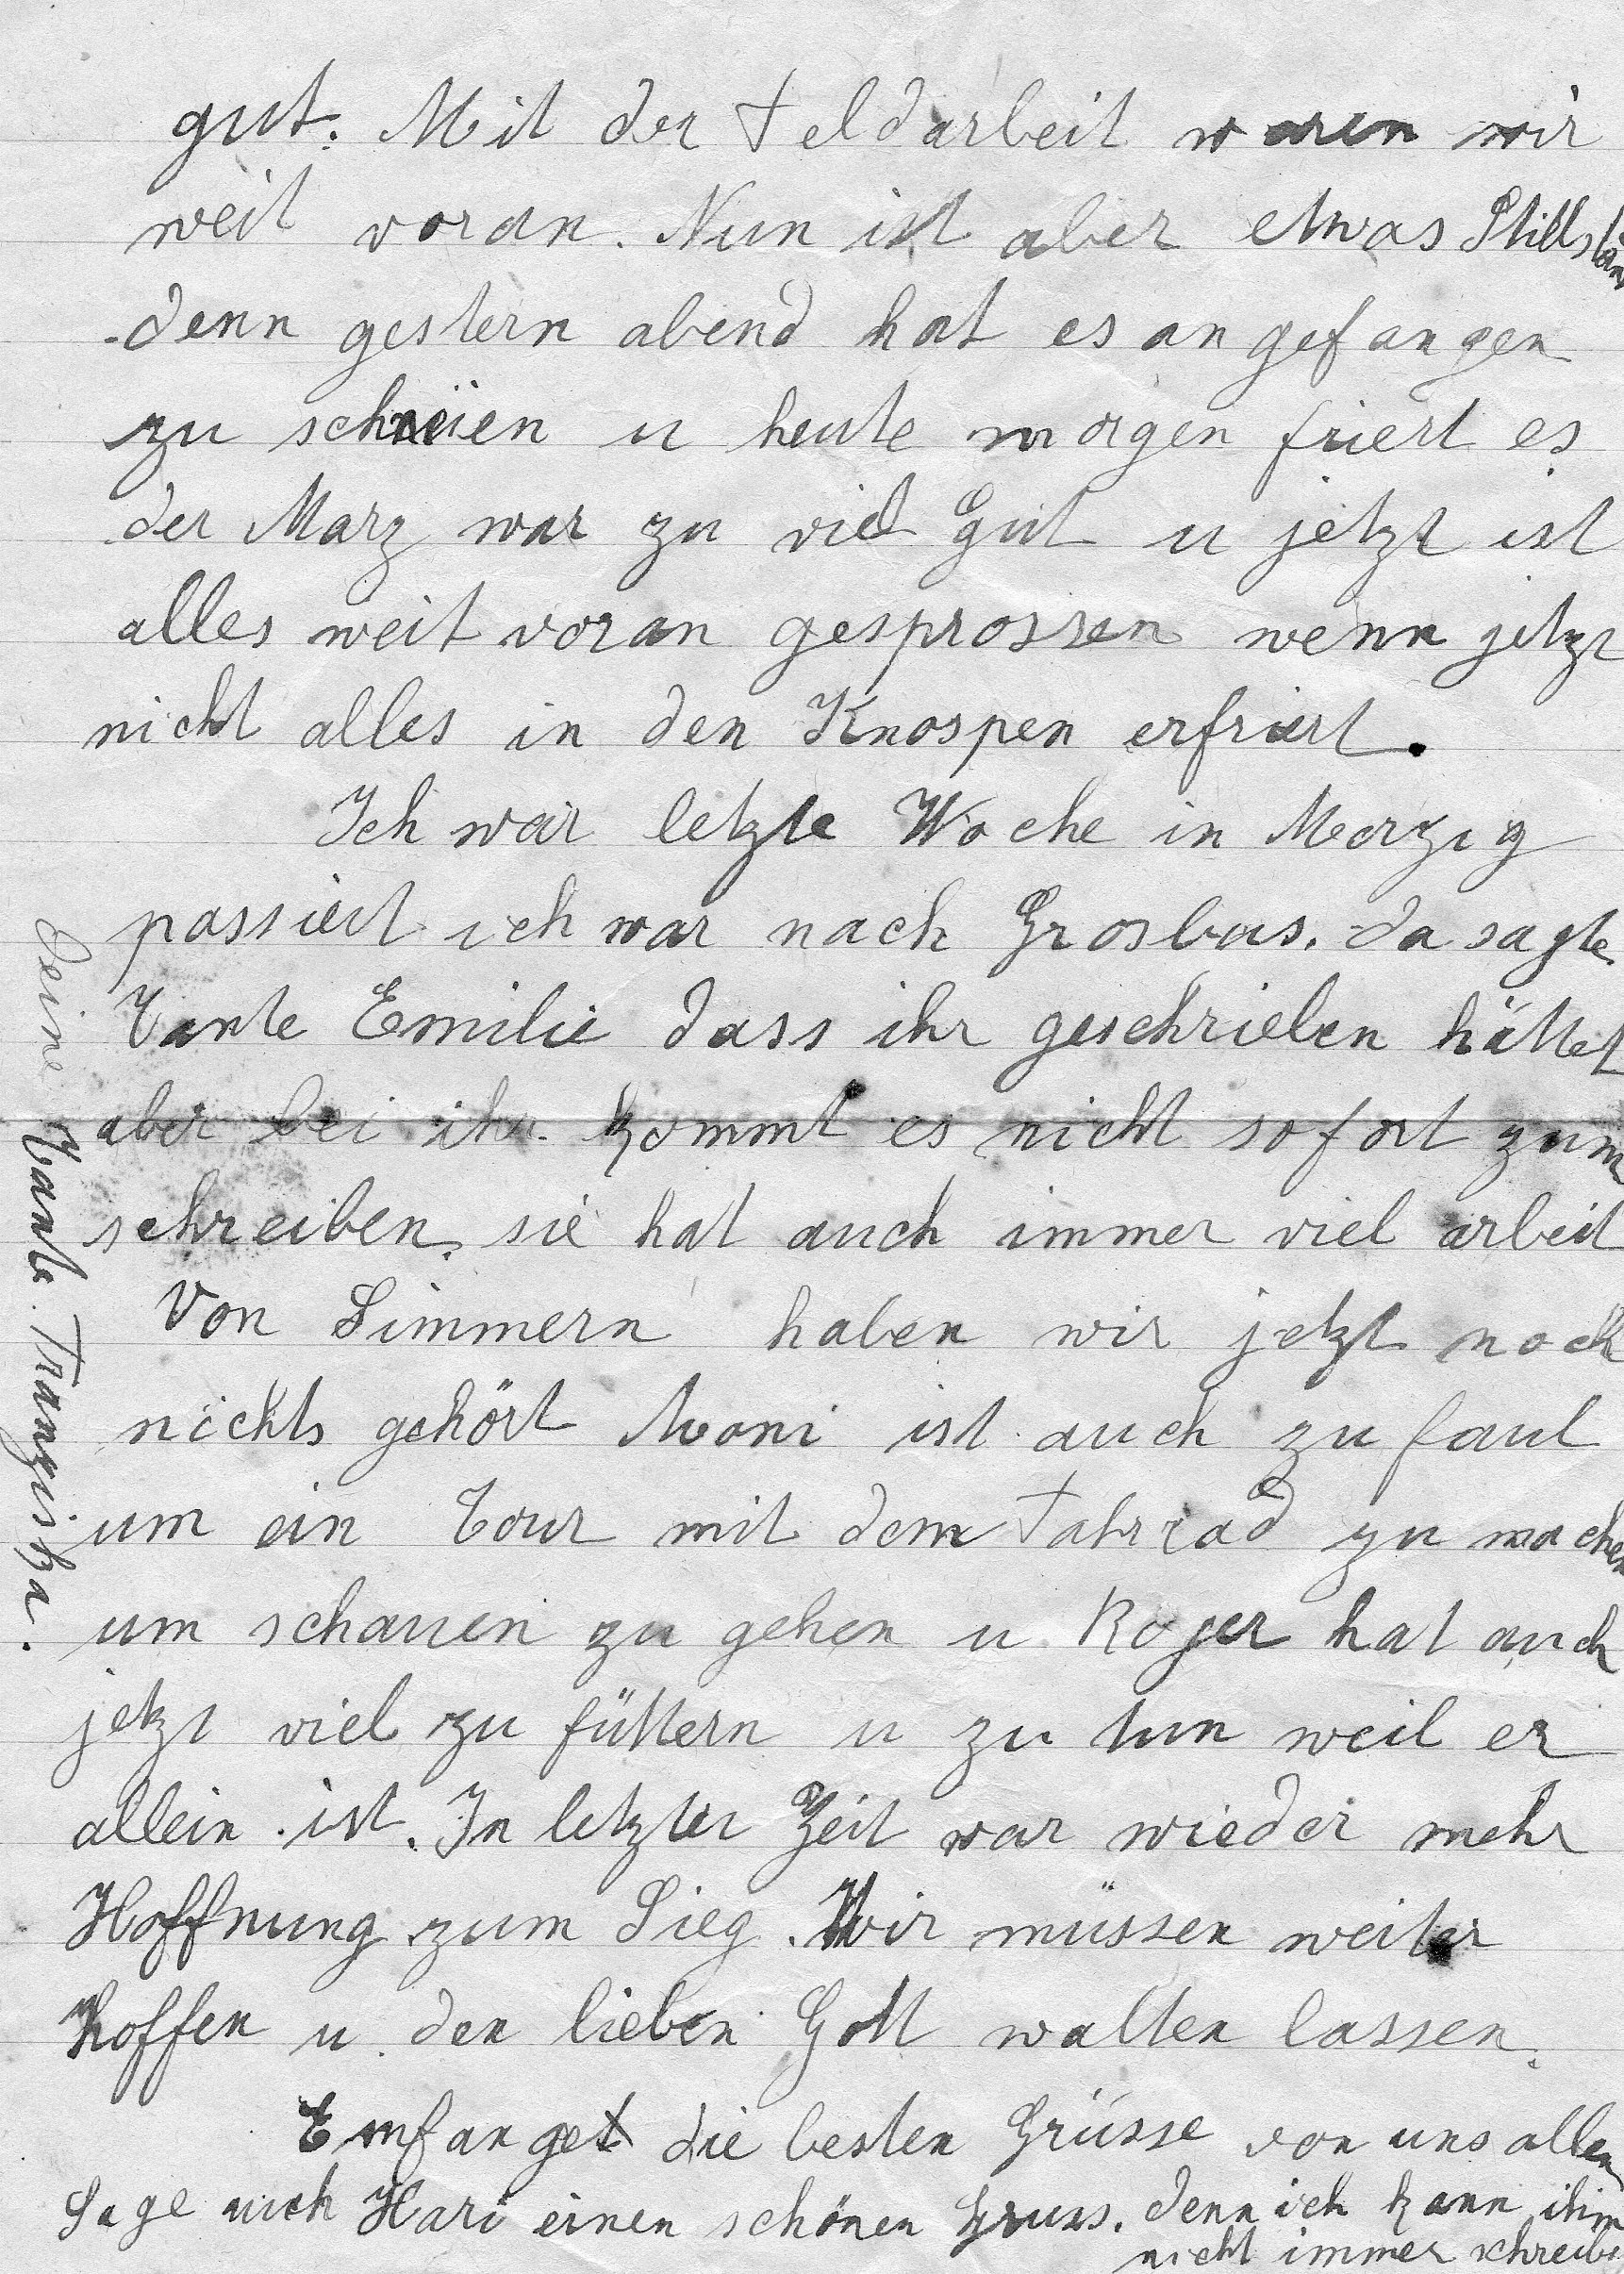 gut. Mit der Feldarbeit waren wir
weit voran. Nun ist aber etwas Stillstan
denn gestern abend hat es angefangen
zu schneien u heute morgen friert es
der Marz war zu viel gut u jetzt ist
alles weit voran gesprossen wenn jetzt
nicht alles in den Knospen erfriert.
Ich war letzte Woche in Merzig
passiert ich war nach Grosbus. da sagte
Tante Emilie dass ihr geschrieben hättet
aber bei ihr kommt es nicht sofort zum
schreiben. sie hat auch immer viel arbeit
Von Simmern haben wir jetzt noch
nichts gehört ist auch zu faul
um ein Tour mit dem Fahrrad zu machen
um schauen zu gehen u Roger hat auch
jetzt viel zu füttern u zu tun weil er
allein ist. In letzter Zeit war wieder mehr
Hoffnung zum Sieg. Wir müssen weiter
hoffen u den lieben Gott walten lassen.
Emfanget die besten Grüsse von uns allen
Sage auch Hari einen schönen Gruss. denn ich kann ihm
nicht immer schreibe
Deine Tante Franziska.